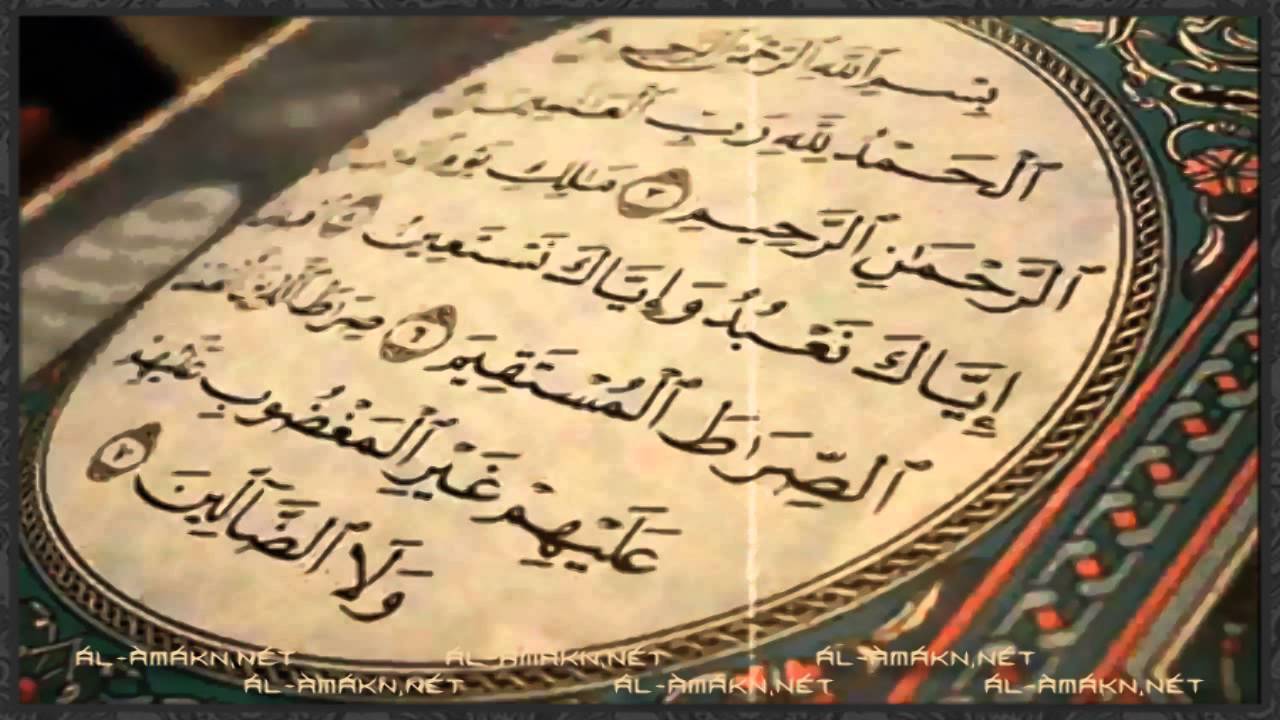 بِسْمِ ٱللَّهِ ٱلرَّحْمَٰنِ ٱلرَّحِيمِ
ٱلْحَمْدُ لِلَّهِ رَبِّ ٱلْعَٰلَمِينَ
ٱلرَّحْمَٰنِ ٱلرَّحِيمِ ٣ مَٰلِكِ يَوْمِ
إِيَّاكَ نَعْبُدُ وَإِيَّاكَ نَسْتَعِينُ ٥
ٱلصِّرَٰطَ ٱلْمُسْتَقِيمَ ٦ صِرَٰطَ ٱلَّذِينَ
عَلَيْهِمْ غَيْرِ ٱلْمَغْضُوبِ عَلَيْهِمْ
وَلَا ٱلضَّآلِّينَ ٧
ÁL-ÀMÁKN,NÉT ÁL-ÀMÁKN,NÉT ÁL-ÀMÁKN,NÉT
ÁL-ÀMÁKN,NÉT ÁL-ÀMÁKN,NÉT ÁL-ÀMÁKN,NÉT